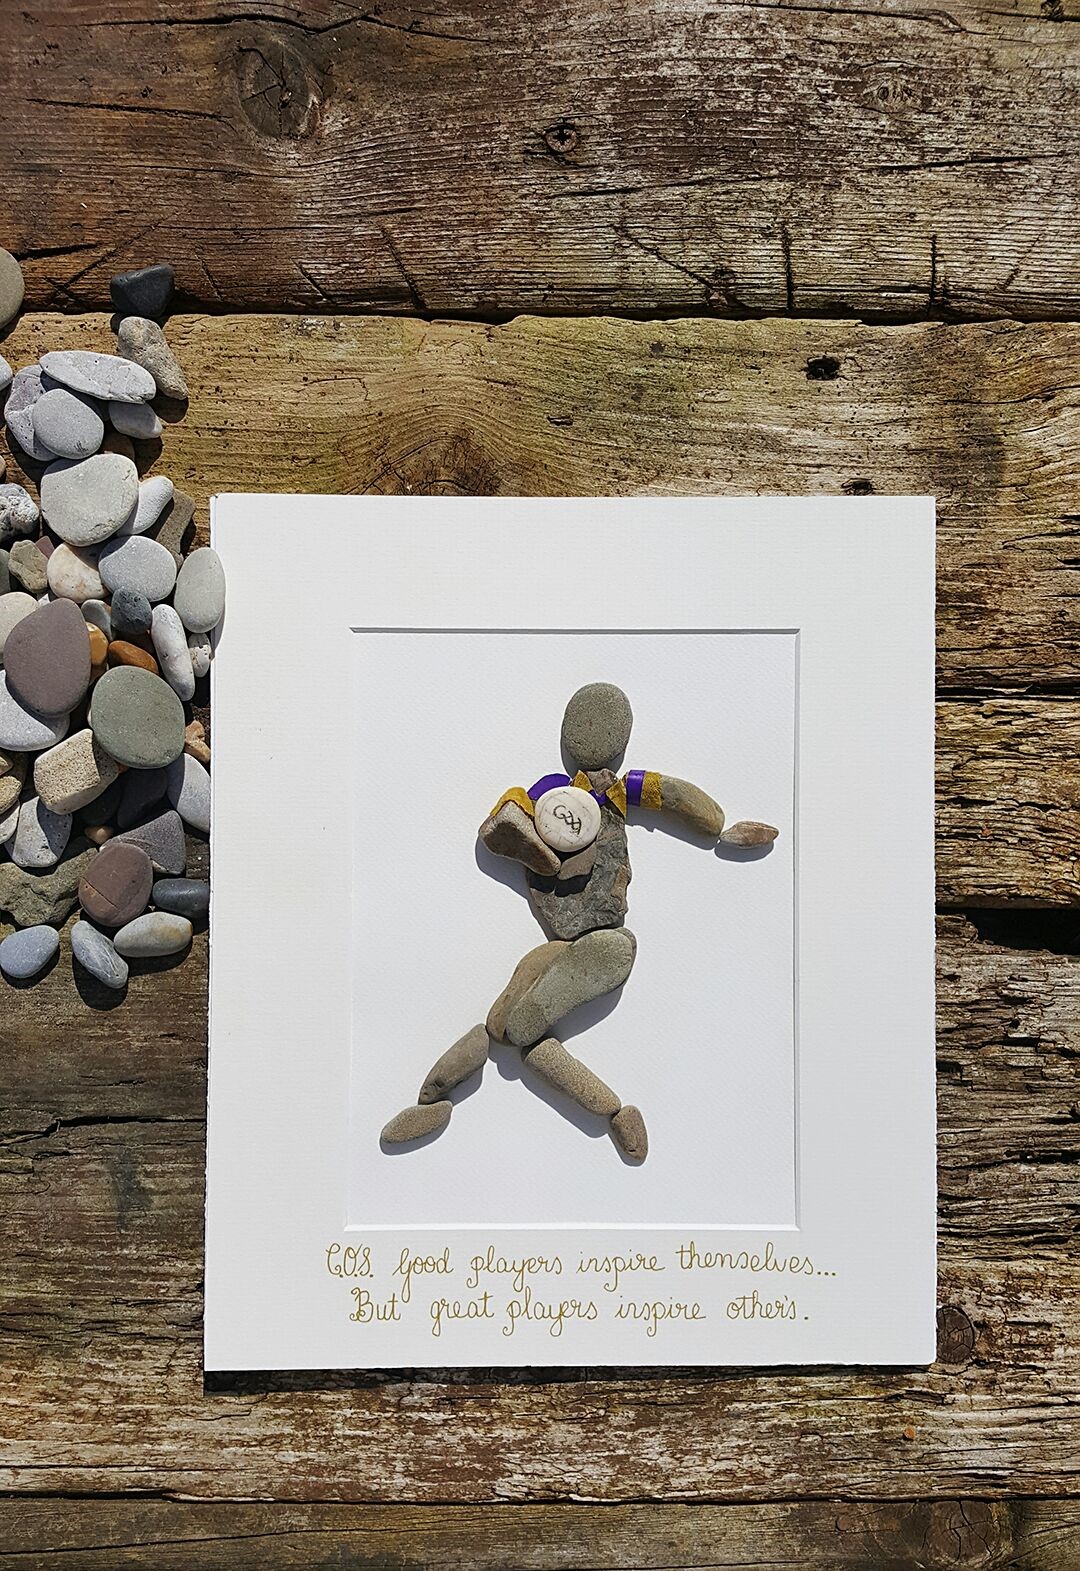 GAA
C.O.S. Good players inspire themselves...
But great players inspire other's.